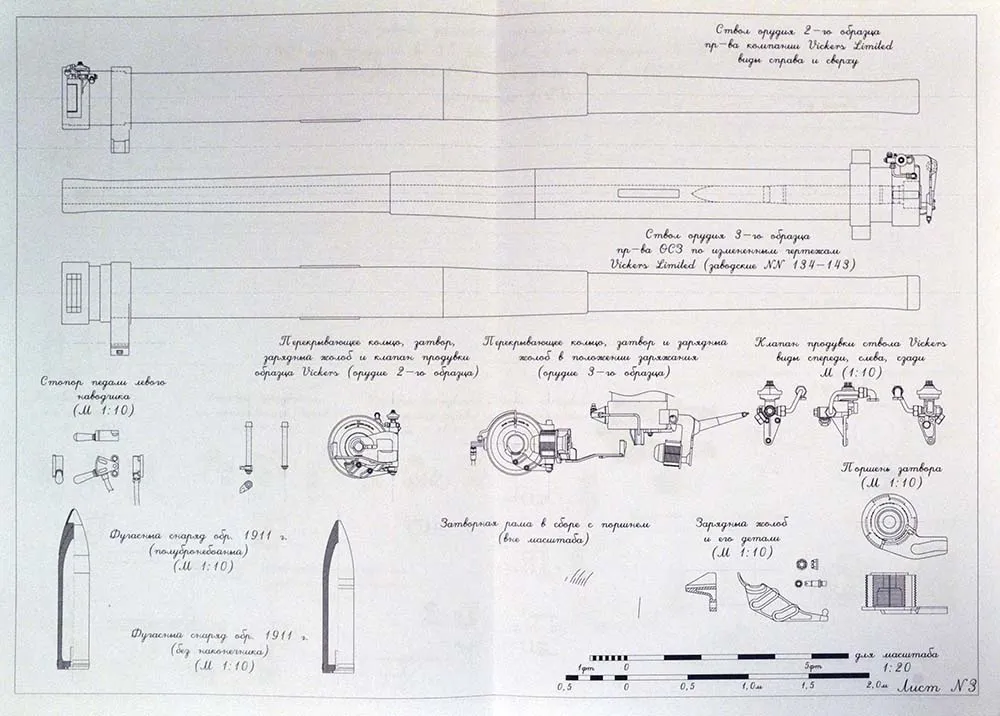 Ствол орудия 2-го образца
пр-ва компании Vickers Limited
виды справа и сверху
Ствол орудия 3-го образца
пр-ва ОСЗ по измененным чертежам
Vickers Limited (заводские NN 134-143)
Перекрывающее кольцо, затвор,
зарядный жолоб и клапан продувки
образца Vickers (орудие 2-го образца)
Перекрывающее кольцо, затвор и зарядный
жолоб в положении заряжания
(орудие 3-го образца)
Клапан продувки ствола Vickers
виды спереди, слева, сзади
М (1:10)
Стопор педали левого
наводчика
(М 1:10)
Поршень затвора
(М 1:10)
Фугасный снаряд обр. 1911 г.
(полубронебойный)
(М 1:10)
Затворная рама в сборе с поршнем
(вне масштаба)
Зарядный жолоб
и его детали
(М 1:10)
Фугасный снаряд обр. 1911 г.
(без наконечника)
(М 1:10)
для масштаба
1:20
1фт 0 5фт
0,5 0 0,5 1,0м 1,5 2,0м
Лист N3